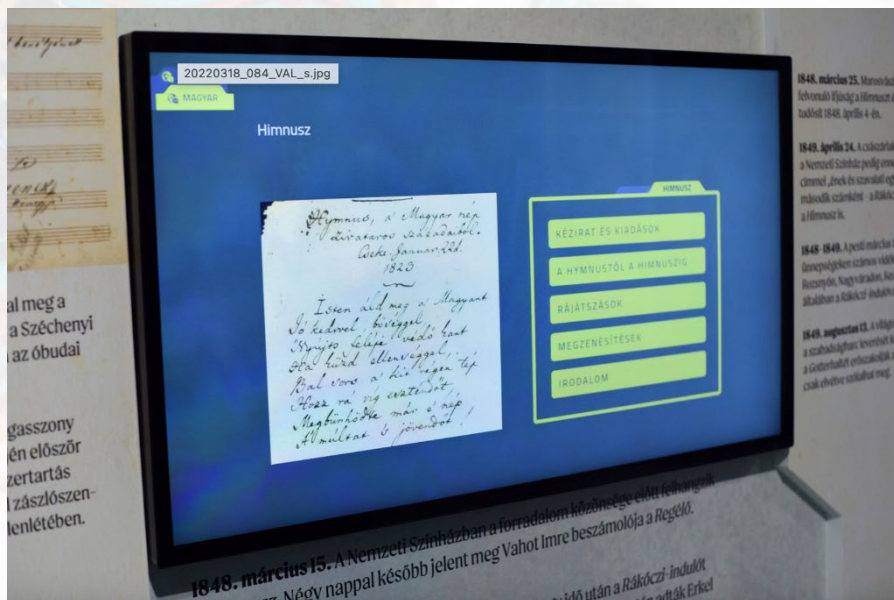 20220318_084_VAL_s.jpg
MAGYAR
Himnusz
Hymnus, a' Magyar nép
zivataros századaiból.
Cseke, Januar. 22d.
1823
Isten áld meg a' Magyart
Jó kedvvel, bőséggel,
Nyújts feléje védő kart
Ha küzd ellenséggel,
Bal sors a' kit régen tép
Hozz rá víg esztendőt,
Megbűnhődte már e' nép
A' multat 's jövendőt!
HIMNUSZ
KÉZIRAT ÉS KIADÁSOK
A HYMNUSTÓL A HIMNUSZIG
RÁJÁTSZÁSOK
MEGZENÉSÍTÉSEK
IRODALOM
al meg a
a Széchenyi
az óbudai
gasszony
én először
zertartás
zászlószen-
lenlétében.
1848. március 25.
felvonuló ifjúság a Himnuszt é
tudósít 1848. április 4-én.
1849. április 24. A császáriak
a Nemzeti Színház pedig
címmel
második számként - a Rákóc
a Himnusz is.
1848-1849. A pesti március 1
ünnepségeken számos
Rozsnyón, Nagyváradon,
általában a Rákóczi-induló
1849. augusztus 13. A
a szabadságharc leverését
a Gotterhaltét
csak elvétve szólalhat meg.
1848. március 15. A Nemzeti Színházban a forradalom közönsége előtt felhangzik
Négy nappal később jelent meg Vahot Imre beszámolója a Regélő.
idő után a Rákóczi-indulót
adták Erkel